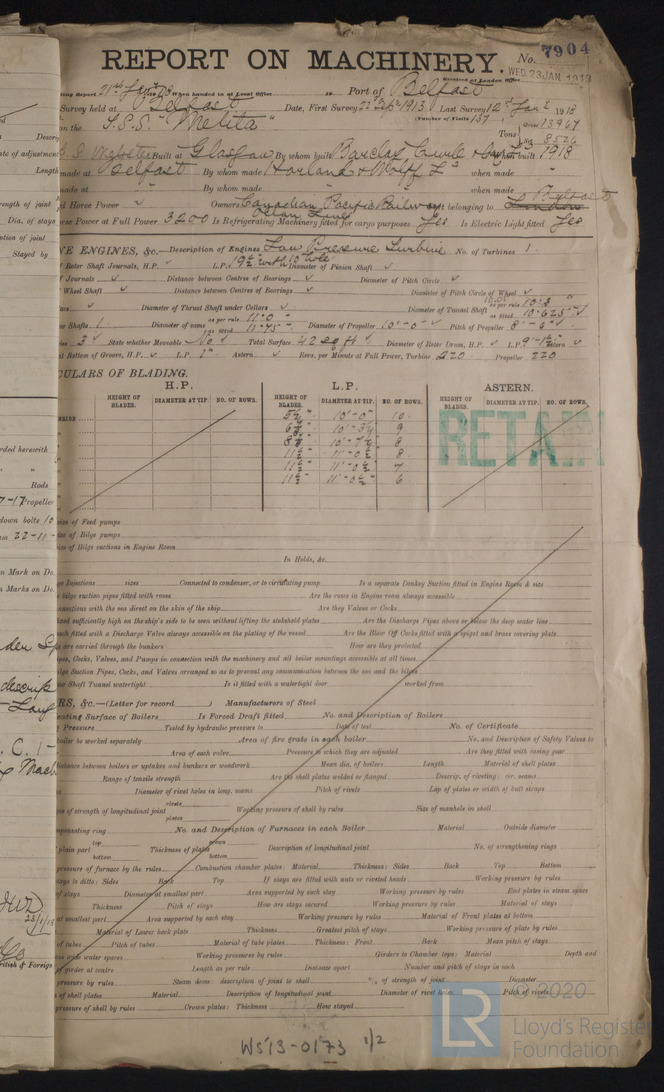 REPORT ON MACHINERY.
No. 7904
WED. 23 JAN. 1918
Received at London Office
ing Report 21st Jan 1918 When handed in at Local Office 19 Port of Belfast
Survey held at Belfast Date, First Survey 22nd Sep 1913 Last Survey 12th Jan 1918
(Number of Visits 137
on the S.S.S. "Melita" Tons Gross 13967 Net 8526
Master Built at Glasgow By whom built Barclay Curle & Co When built 1918
made at Belfast By whom made Harland & Wolff Ld when made "
made at By whom made when made
Horse Power Owners Canadian Pacific Railway Port belonging to London Belfast
Ocean Lines
se Power at Full Power 3200 Is Refrigerating Machinery fitted for cargo purposes Yes Is Electric Light fitted Yes
VE ENGINES, &c.—Description of Engines Low Pressure Turbine No. of Turbines 1
Rotor Shaft Journals, H.P. L.P. 19½" with 10" hole Diameter of Pinion Shaft
Journals Distance between Centres of Bearings Diameter of Pitch Circle
Wheel Shaft Distance between Centres of Bearings Diameter of Pitch Circle of Wheel
Diameter of Thrust Shaft under Collars Diameter of Tunnel Shaft as per rule 10.3 as fitted 10.625"
Shafts 1 Diameter of same as per rule 11.0 as fitted 11.75" Diameter of Propeller 10'-0" Pitch of Propeller 8'-6"
3 State whether Moveable No Total Surface 42 sq ft Diameter of Rotor Drum, H.P. L.P. 9'-1½" Astern
at Bottom of Groove, H.P. L.P. 1" Astern Revs. per Minute at Full Power, Turbine 220 Propeller 220
CULARS OF BLADING.
H.P. L.P. ASTERN.
HEIGHT OF BLADES. DIAMETER AT TIP. NO. OF ROWS. HEIGHT OF BLADES. DIAMETER AT TIP. NO. OF ROWS. HEIGHT OF BLADES. DIAMETER AT TIP. NO. OF ROWS.
10'-0" 10
9
8
11½" 11'-0½" 8
11½" 11'-0½" 7
11½" 11'-0½" 6
RETAIN
size of Feed pumps
size of Bilge pumps
size of Bilge suctions in Engine Room
In Holds, &c.
ge Injections sizes Connected to condenser, or to circulating pump Is a separate Donkey Suction fitted in Engine Room & size
bilge suction pipes fitted with roses Are the roses in Engine room always accessible
connections with the sea direct on the skin of the ship Are they Valves or Cocks
ixed sufficiently high on the ship's side to be seen without lifting the stokehold plates Are the Discharge Pipes above or below the deep water line
each fitted with a Discharge Valve always accessible on the plating of the vessel Are the Blow Off Cocks fitted with a spigot and brass covering plate
s are carried through the bunkers How are they protected
ipes, Cocks, Valves, and Pumps in connection with the machinery and all boiler mountings accessible at all times
ilge Suction Pipes, Cocks, and Valves arranged so as to prevent any communication between the sea and the bilges
Shaft Tunnel watertight Is it fitted with a watertight door worked from
RS, &c.—(Letter for record ) Manufacturers of Steel
eating Surface of Boilers Is Forced Draft fitted No. and Description of Boilers
Pressure Tested by hydraulic pressure to Date of test No. of Certificate
boiler be worked separately Area of fire grate in each boiler No. and Description of Safety Valves to
Area of each valve Pressure to which they are adjusted Are they fitted with easing gear
distance between boilers or uptakes and bunkers or woodwork Mean dia. of boilers Length Material of shell plates
Range of tensile strength Are the shell plates welded or flanged Descrip. of riveting: cir. seams
Diameter of rivet holes in long. seams Pitch of rivets Lap of plates or width of butt straps
es of strength of longitudinal joint rivets plates Working pressure of shell by rules Size of manhole in shell
mpensating ring No. and Description of Furnaces in each Boiler Material Outside diameter
plain part top bottom Thickness of plates crown bottom Description of longitudinal joint No. of strengthening rings
pressure of furnace by the rules Combustion chamber plates: Material Thickness: Sides Back Top Bottom
tays to ditto: Sides Back Top If stays are fitted with nuts or riveted heads Working pressure by rules
of stays Diameter at smallest part Area supported by each stay Working pressure by rules End plates in steam space
Thickness Pitch of stays How are stays secured Working pressure by rules Material of stays
at smallest part Area supported by each stay Working pressure by rules Material of Front plates at bottom
Material of Lower back plate Thickness Greatest pitch of stays Working pressure of plate by rules
of tubes Pitch of tubes Material of tube plates Thickness: Front Back Mean pitch of stays
ss wide water spaces Working pressures by rules Girders to Chamber tops: Material Depth and
of girder at centre Length as per rule Distance apart Number and pitch of stays in each
pressure by rules Steam dome: description of joint to shell % of strength of joint Diameter
of shell plates Material Description of longitudinal joint Diameter of rivet holes Pitch of rivets
pressure of shell by rules Crown plates: Thickness How stayed
WS13-0173 1/2
LR
© 2020
Lloyd's Register
Foundation